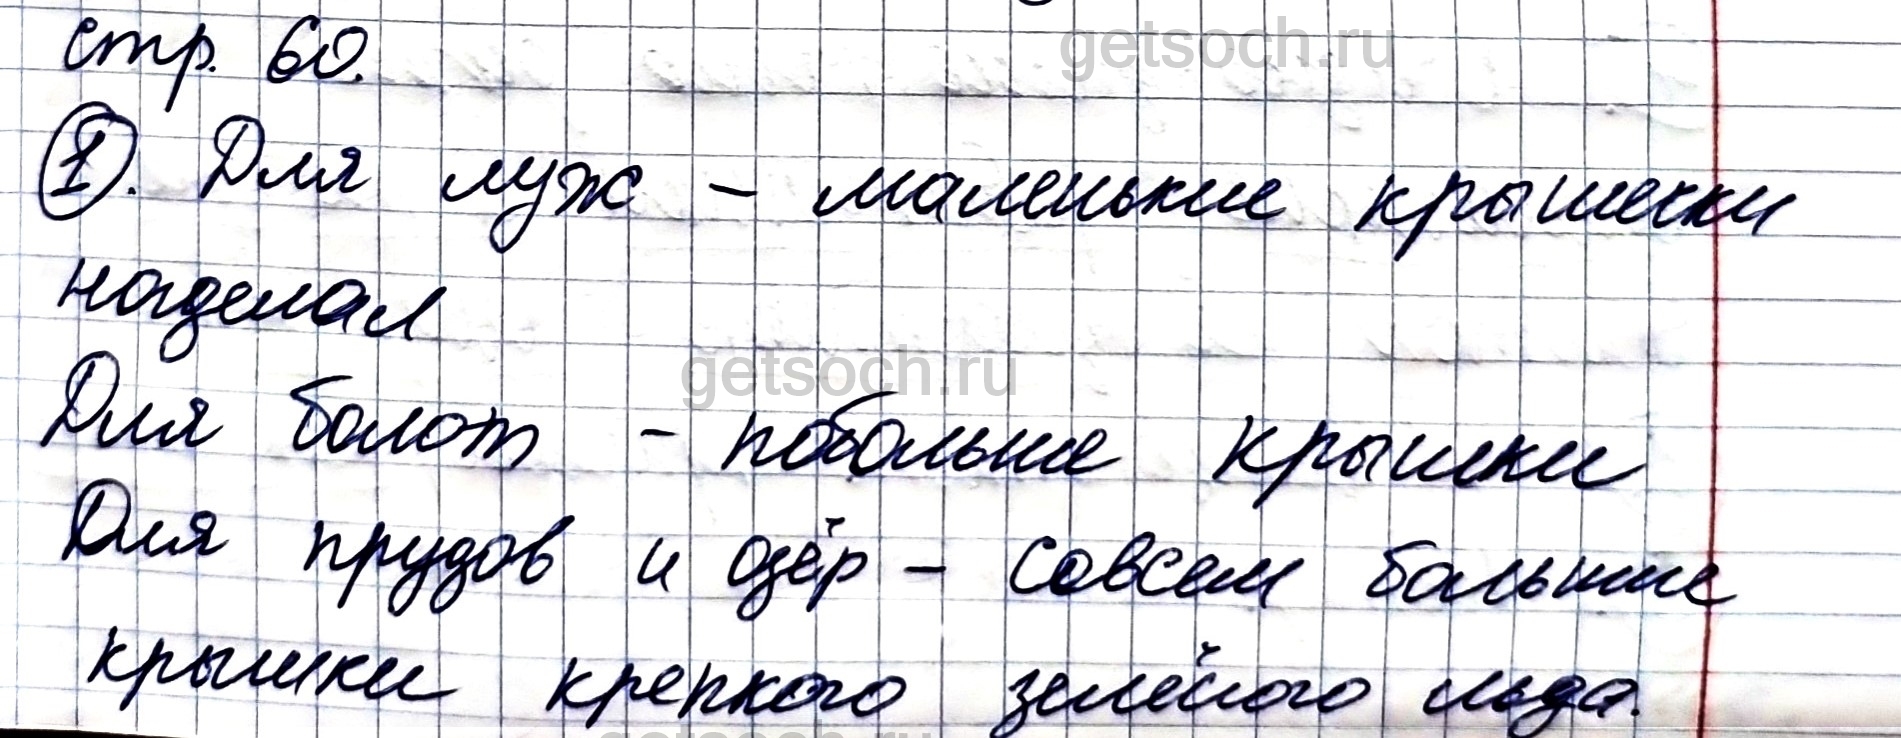 getsoch.ru
стр. 60.
1. Для луж – маленькие крышечки
наделал
getsoch.ru
Для болот – побольше крышки
Для прудов и озёр – совсем большие
крышки крепкого зелёного льда.
getsoch.ru